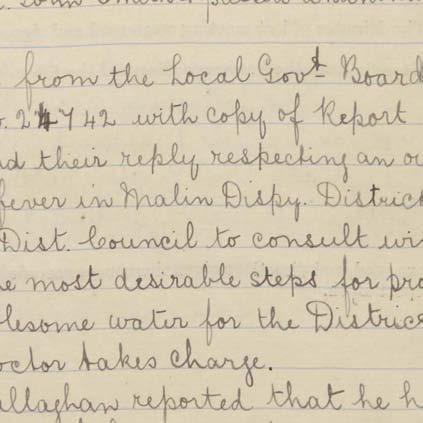 from the Local Govt Board
24742 with copy of Report
their reply respecting an
fever in Malin Dispy. District
Dist. Council to consult
most desirable steps for
water for the District
takes charge.
reported that he